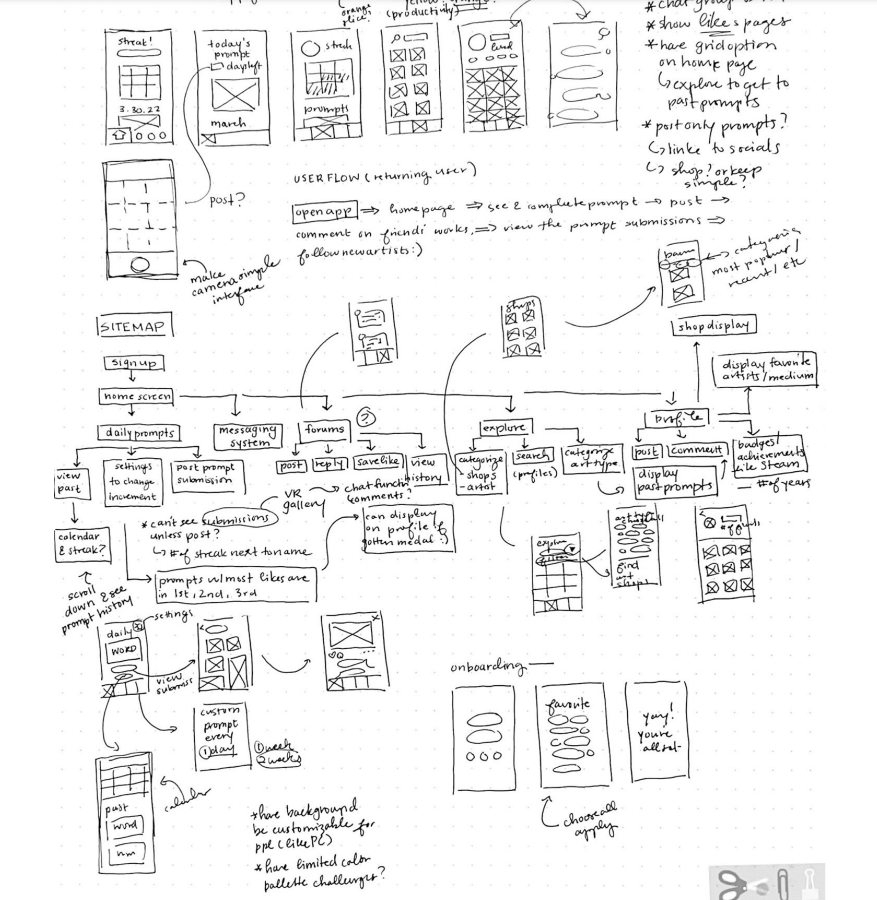 (productivity)
* chat group
* show likes pages
* have grid option
on home page
↳ explore to get to
past prompts
* post only prompts?
↳ linke to socials
↳ shop? or keep
simple?
streak!
3.30.22
today's
prompt
days left
march
prompts
post?
make
camera simple
interface
USER FLOW (returning user)
open app ⇒ homepage ⇒ see & complete prompt → post →
comment on friends' works, ⇒ view the prompt submissions ⇒
follow new artists :)
categories
most popular/
recent/etc
shops
shop display
display favorite
artists/medium
SITEMAP
sign up
home screen
daily prompts
messaging
system
forums
?
explore
profile
view
past
settings
to change
increment
post prompt
submission
post
reply
save like
view
history
categorize
shops
-artist
search
(profiles)
categorize
art type
post
comment
badges/
achievements
like Steam
— # of years
display
past prompts
VR
gallery
→ chat function
comments?
calendar
& streak?
* can't see submissions
unless post?
↳ # of streak next to name
can display
on profile if
gotten medal :)
prompts w/ most likes are
in 1st, 2nd, 3rd
scroll
down & see
prompt history
find
art
shops
daily
settings
WORD
view
submiss
custom
prompt
every
1 day
1 week
2 weeks
onboarding —
favorite
yay!
you're
all set
choose all
apply
past
word
calendar
* have background
be customizable for
ppl (like PC)
* have limited color
pallette challenges?